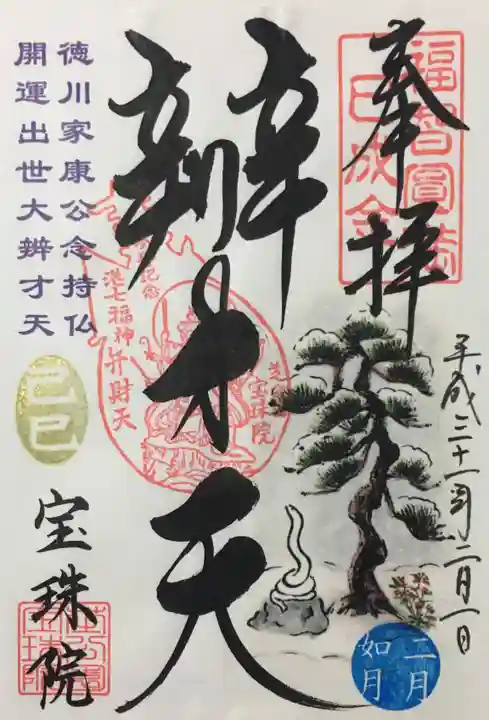 奉拝
福智圓満
巳成金
平成三十一年二月一日
辨才天
参拝記念
港七福神弁財天
芝
宝珠院
徳川家康公念持仏
開運出世大辨才天
己巳
宝珠院
二月
如月